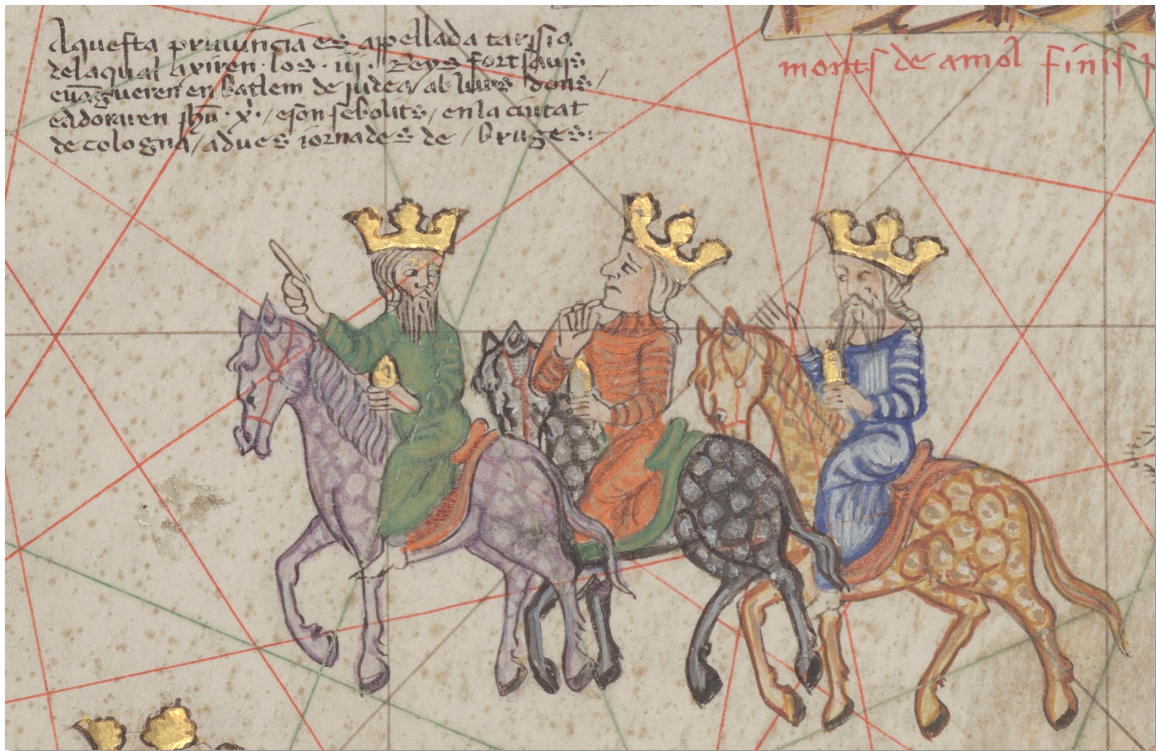 Aquesta prouincia es apellada tarssia
delaqual axiren los iij Reys fort sauis
euangueren en batlem de judea ab lurs dons
eadoraren jhũ x̄ eson sebolits en la ciutat
de cologna adues iornades de bruges
monts de amol finis